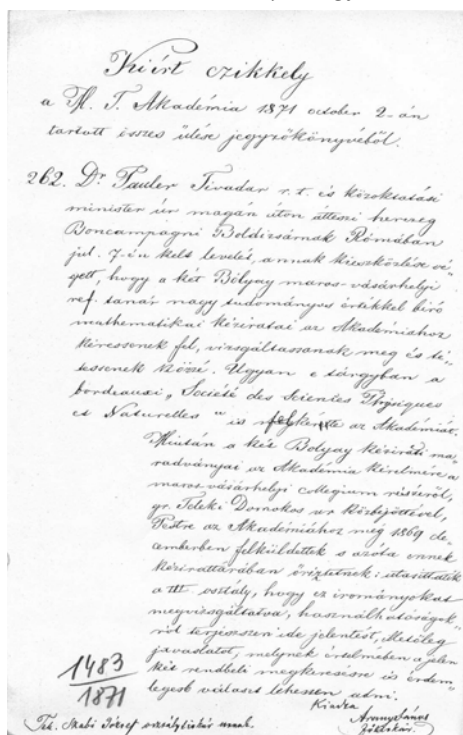 Kiírt czikkely
a M. T. Akadémia 1871 october 2-án
tartott összes ülése jegyzőkönyvéből.
262. Dr Pauler Tivadar r. t. és közoktatási
minister úr magán úton átteszi herczeg
Boncampagni Boldizsárnak Rómában
jul. 7-én kelt levelét, annak kieszközlése vé„
gett, hogy a két Bólyay maros-vásárhelyi
ref. tanár nagy tudományos értékkel biró
mathematikai kéziratai az Akadémiához
kéressenek fel, vizsgáltassanak meg és té„
tessenek közzé. Ugyan e tárgyban a
bordeauxi „Societé des Scientes Physiques
et Naturelles" is felkérte az Akadémiát.
Miután a két Bolyay kézirati ma„
radványai az Akadémia kérelmére a
maros vásárhelyi collegium részéről,
gr. Teleki Domokos ur közbejöttével,
Pestre az Akadémiához még 1869 de„
cemberben felküldettek s azóta ennek
kézirattárában őriztetnek: utasíttaték
a III. osztály, hogy ez irományokat
megvizsgáltatva, használhatóságok„
ról terjeszszen ide jelentést, illetőleg
javaslatot, melynek értelmében a jelen
két rendbeli megkeresésre is érdem„
leges választ lehessen adni.
1483
1871
Kiadta
Arany János
főtitkár.
Tek. Szabó József osztálytitkár urnak.